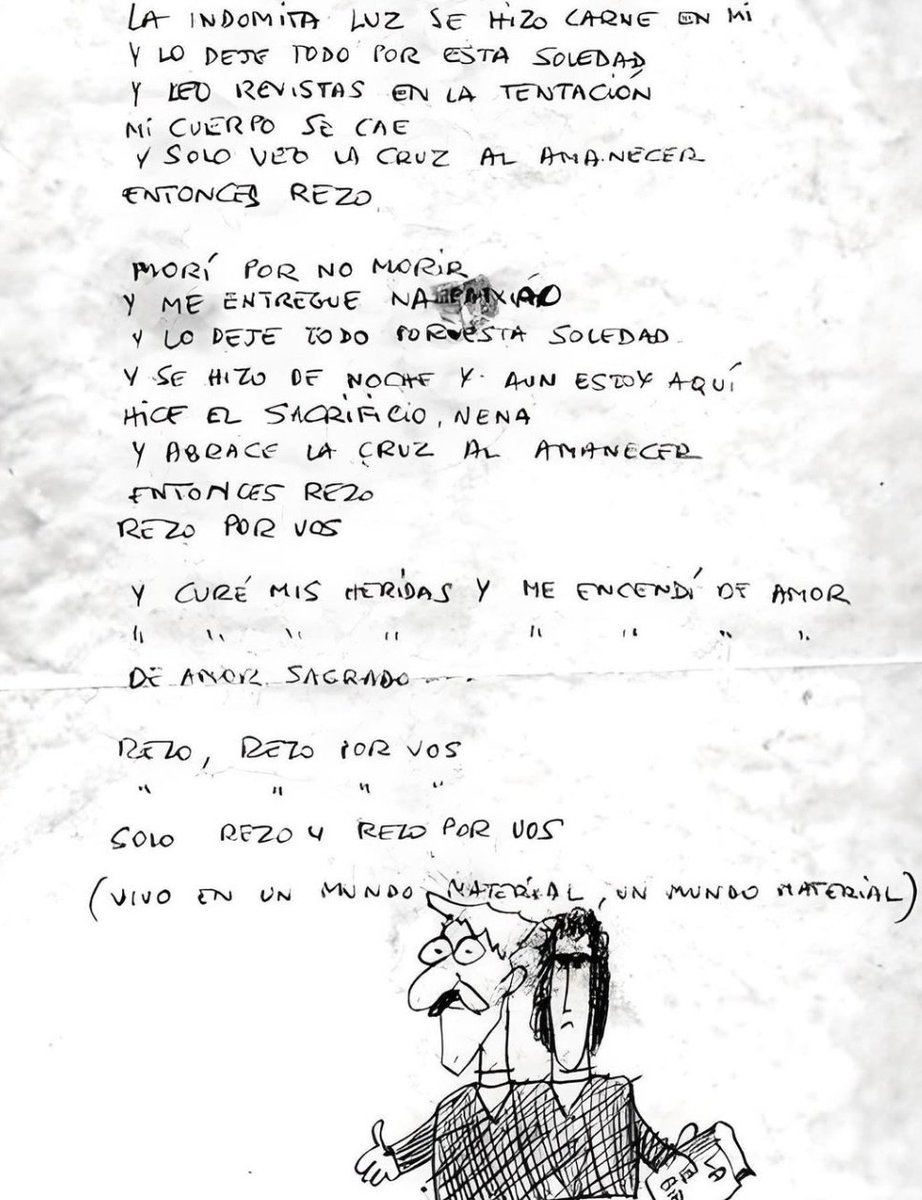 LA INDOMITA LUZ SE HIZO CARNE EN MI
Y LO DEJE TODO POR ESTA SOLEDAD
Y LEO REVISTAS EN LA TENTACIÓN
MI CUERPO SE CAE
Y SOLO VEO LA CRUZ AL AMANECER
ENTONCES REZO
MORÍ POR NO MORIR
Y ME ENTREGUE
Y LO DEJE TODO POR ESTA SOLEDAD
Y SE HIZO DE NOCHE Y AUN ESTOY AQUÍ
HICE EL SACRIFICIO, NENA
Y ABRACE LA CRUZ AL AMANECER
ENTONCES REZO
REZO POR VOS
Y CURÉ MIS HERIDAS Y ME ENCENDÍ DE AMOR
" " " " " " " "
DE AMOR SAGRADO----.
REZO, REZO POR VOS
" " " "
SOLO REZO Y REZO POR VOS
(VIVO EN UN MUNDO MATERIAL, UN MUNDO MATERIAL)
LA